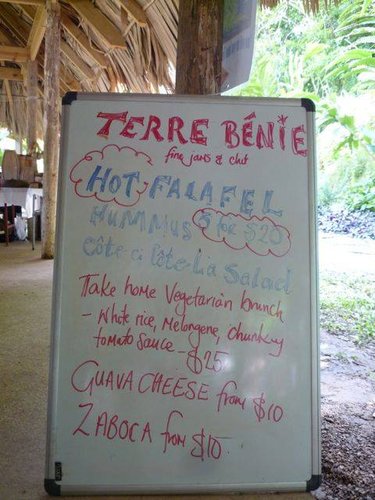 TERRE BÉNIE
fine jams & chut
HOT FALAFEL
HUMMUS 5 for $20
Côte-ci Côte-La Salad
Take home Vegetarian brunch
- White rice, Melongene, Chunky
tomato sauce - $25
GUAVA CHEESE from $10
ZABOCA from $10